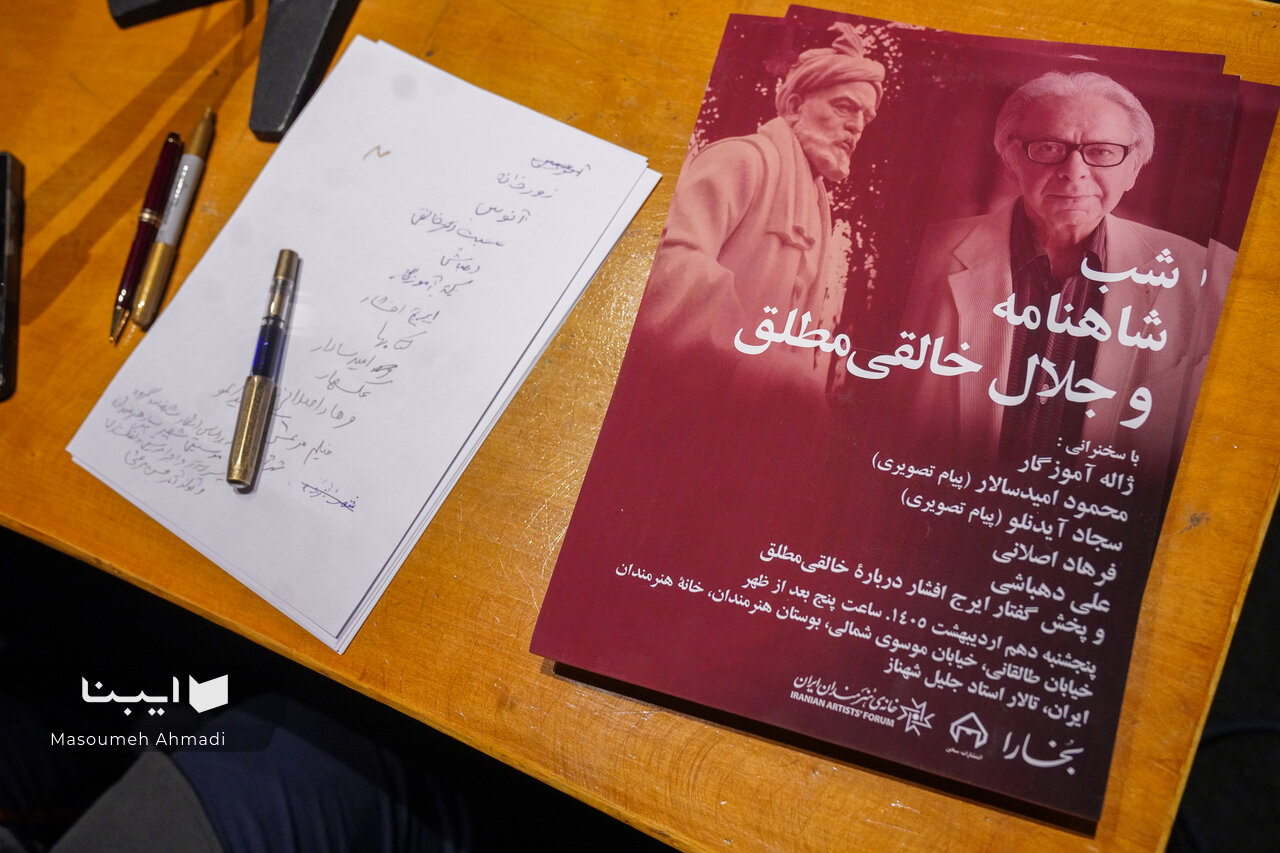 شب
شاهنامه
و جلال خالقی‌مطلق
با سخنرانی:
ژاله آموزگار
محمود امیدسالار (پیام تصویری)
سجاد آیدنلو (پیام تصویری)
فرهاد اصلانی
علی دهباشی
و پخش گفتار ایرج افشار دربارهٔ خالقی‌مطلق
پنجشنبه دهم اردیبهشت ۱۴۰۵. ساعت پنج بعد از ظهر
خیابان طالقانی، خیابان موسوی شمالی، بوستان هنرمندان، خانهٔ هنرمندان
ایران، تالار استاد جلیل شهناز
خانه‌ی هنرمندان ایران
IRANIAN ARTISTS' FORUM
انتشارات سخن
بُخارا
زورخانه
آبنوس
دهباشی
آموزگار
ایرج افشار
کتابها
امیدسالار
عکسها
فرهاد اصلانی
فیلم
ایبنا
Masoumeh Ahmadi